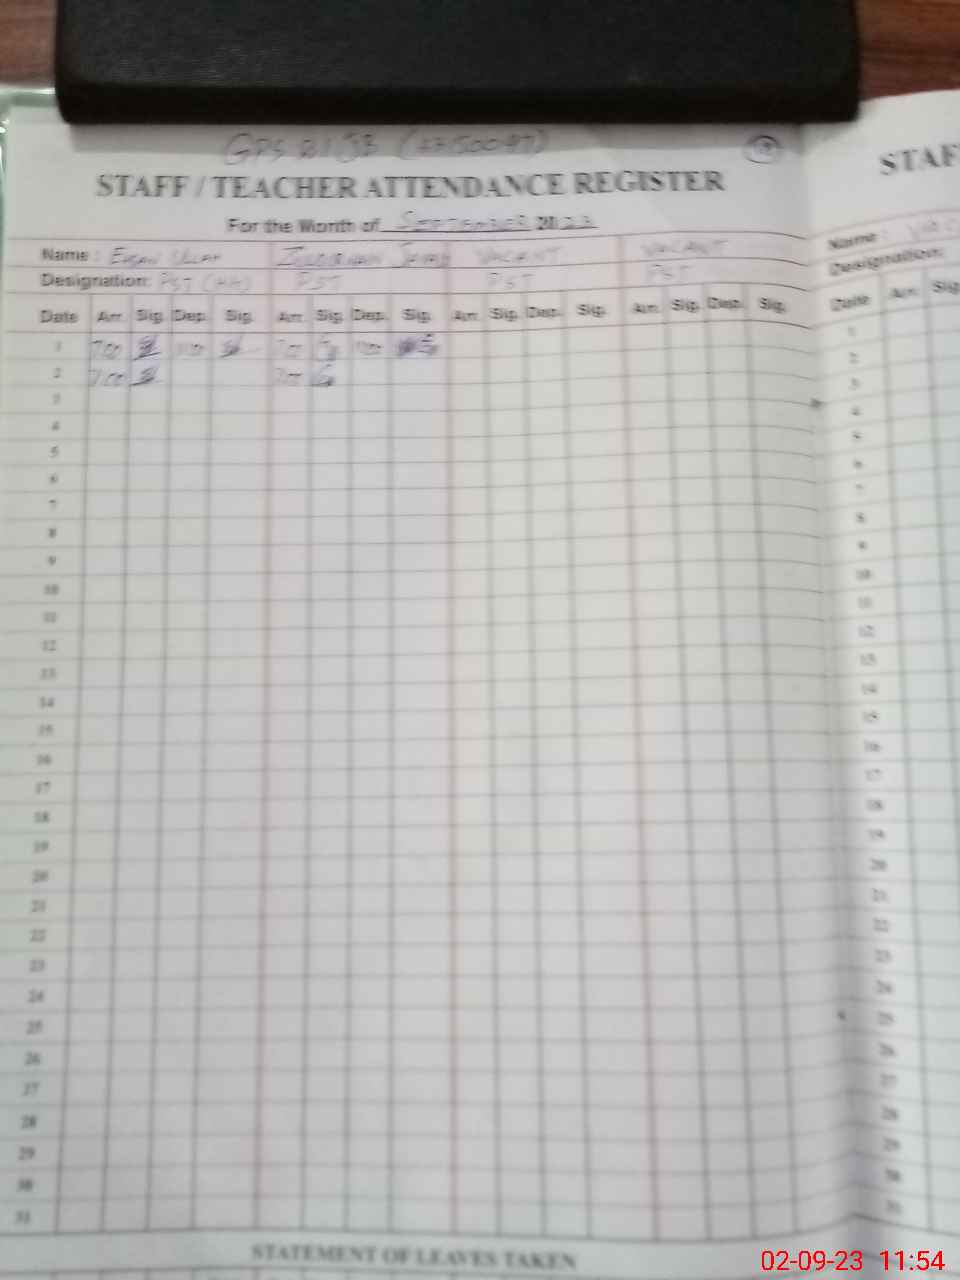 GPS
STAFF / TEACHER ATTENDANCE REGISTER
For the Month of SEPTEMBER 2023
Name : EHSAN ULLAH VACANT VACANT
Designation: PST (HH) PST PST PST
Date Arr. Sig. Dep. Sig. Arr. Sig. Dep. Sig. Arr. Sig. Dep. Sig. Arr. Sig. Dep. Sig.
1 7:00 11:00 7:00 11:00
2 7:00 7:00
3
4
5
6
7
8
9
10
11
12
13
14
15
16
17
18
19
20
21
22
23
24
25
26
27
28
29
30
31
STATEMENT OF LEAVES TAKEN
STAF
Name:
Designation:
Date Arr. Sig
1
2
3
4
5
6
7
8
9
10
11
12
13
14
15
16
17
18
19
20
21
22
23
24
25
26
27
28
29
30
31
02-09-23 11:54